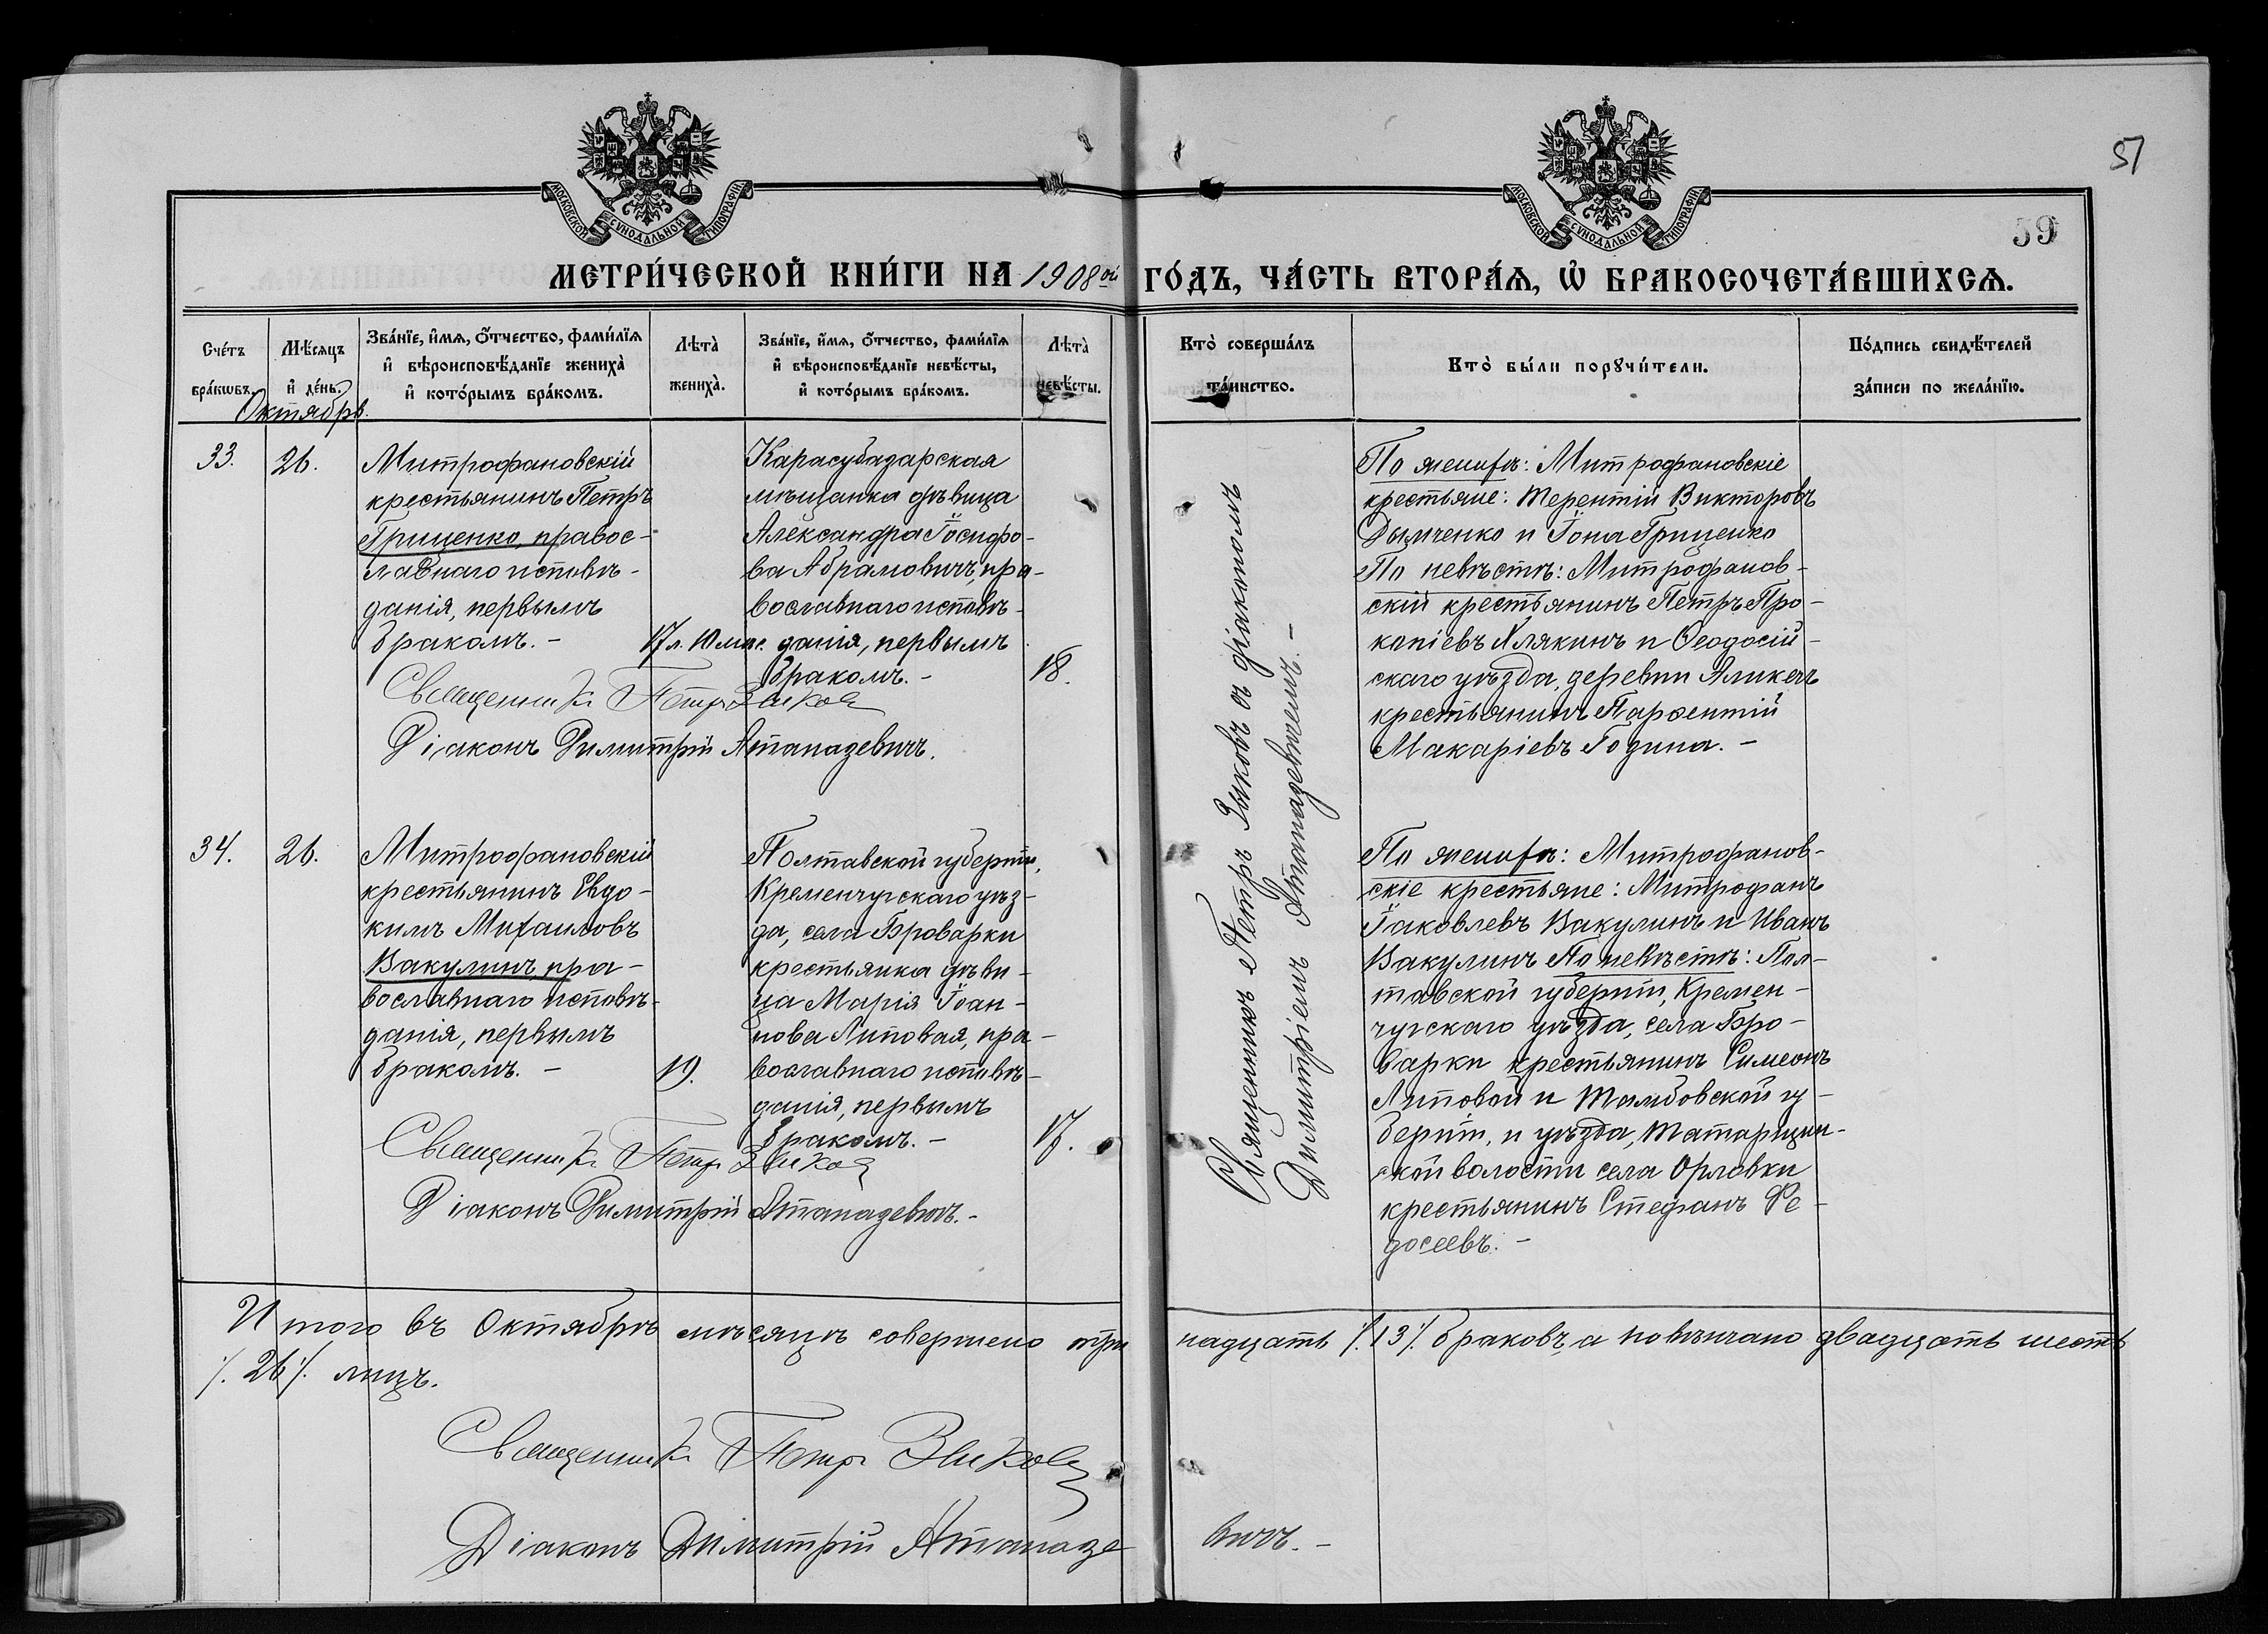 57
59
МОСКОВСКОЙ СУНОДАЛЬНОЙ ТИПОГРАФІИ
МОСКОВСКОЙ СУНОДАЛЬНОЙ ТИПОГРАФІИ
МЕТРИ́ЧЕСКОЙ КНИ́ГИ НА 1908ой ГО́ДЪ, ЧА́СТЬ ВТОРА́Ѧ, Ѽ БРАКОСОЧЕТА́ВШИХСѦ.
Сче́тъ бра́кѡвъ.
Мѣ́сяцъ и҆ де́нь.
Зва́нїе, и҆́мѧ, ѻ҆́тчество, фами́лїѧ и҆ вѣроисповѣ́данїе жениха̀ и҆ кото́рымъ бра́комъ.
Лѣта̀ жениха̀.
Зва́нїе, и҆́мѧ, ѻ҆́тчество, фами́лїѧ и҆ вѣроисповѣ́данїе невѣ́сты, и҆ кото́рымъ бра́комъ.
Лѣта̀ невѣ́сты.
Кто̀ соверша́лъ та́инство.
Кто̀ бы́ли порꙋчи́тели.
По́дпись свидѣ́телей за́писи по жела́нїю.
Октябрь.
33.
26.
Митрофановскій
крестьянинъ Петръ
Гриценко, правос-
лавнаго исповѣ-
данія, первымъ
бракомъ. -
17 л. 10 мѣс.
Карасубазарская
мѣщанка дѣвица
Александра Іосифо-
ва Абрамовичъ, пра-
вославнаго исповѣ-
данія, первымъ
бракомъ. -
18.
Священникъ Петръ Зыковъ
Діаконъ Димитрій Атаназевичъ.
Священникъ Петръ Зыковъ съ діакономъ
Димитріемъ Атаназевичемъ. -
По женихѣ: Митрофановскіе
крестьяне: Терентій Викторовъ
Дымченко и Іона Гриценко
По невѣстѣ: Митрофанов-
скій крестьянинъ Петръ Про-
копіевъ Клякинъ и Ѳеодосій-
скаго уѣзда, деревни Аликечъ
крестьянинъ Парѳентій
Макаріевъ Година. -
34.
26.
Митрофановскій
крестьянинъ Евдо-
кимъ Михаиловъ
Вакулинъ, пра-
вославнаго исповѣ-
данія, первымъ
бракомъ. -
19.
Полтавской губерніи,
Кременчугскаго уѣз-
да, села Броварки
крестьянка дѣви-
ца Марія Іоан-
нова Липовая, пра-
вославнаго исповѣ-
данія, первымъ
бракомъ. -
17.
Священникъ Петръ Зыковъ
Діаконъ Димитрій Атаназевичъ. -
По женихѣ: Митрофанов-
скіе крестьяне: Митрофанъ
Іаковлевъ Вакулинъ и Иванъ
Вакулинъ По невѣстѣ: Пол-
тавской губерніи, Кремен-
чугскаго уѣзда, села Бро-
варки крестьянинъ Симеонъ
Липовой и Тамбовской гу-
берніи, и уѣзда, Татарщин-
ской волости села Орловки
крестьянинъ Стефанъ Фе-
досеевъ. -
Итого въ Октябрѣ мѣсяцѣ совершено три надцать /.13/. браковъ, а повѣнчано двадцать шесть
/.26/. лицъ.
Священникъ Петръ Зыковъ
Діаконъ Димитрій Атаназе вичъ. -